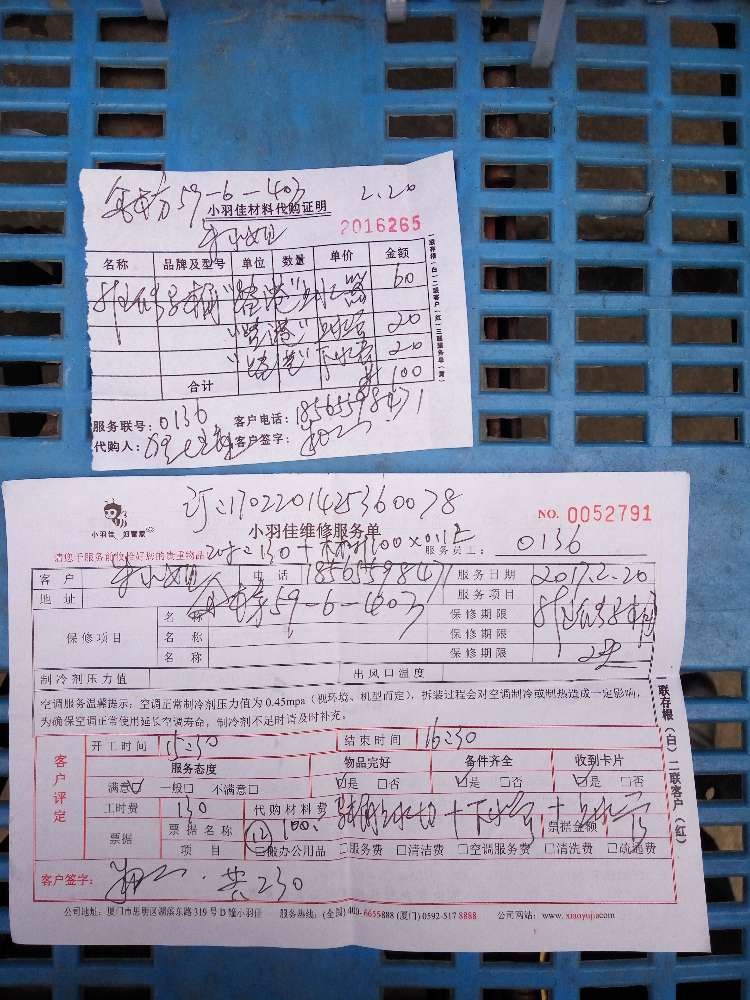 59-6-403 2.20
小羽佳材料代购证明
2016265
名称 品牌及型号 单位 数量 单价 金额
60
上水管 20
下水管 20
合计 共100
服务联号：0136 客户电话：18565598471
代购人： 客户签字：
一联存根（白）二联客户（红）三联服务单（黄）
订：1702201425360078
小羽佳 妇管家
小羽佳维修服务单
NO. 0052791
请您于服务前收捡好您的贵重物品
130+材料100 服务员工：0136
客户 电话 18565598471 服务日期 2017.2.20
地址 59-6-403 服务项目
保修项目 名称 保修期限
名称 保修期限
名称 保修期限
制冷剂压力值 出风口温度
空调服务温馨提示：空调正常制冷剂压力值为0.45mpa（视环境、机型而定），拆装过程会对空调制冷或制热造成一定影响，
为确保空调正常使用延长空调寿命，制冷剂不足时请及时补充。
客户评定
开工时间 15:30 结束时间 16:30
服务态度 物品完好 备件齐全 收到卡片
满意☑ 一般□ 不满意□ ☑是 □否 ☑是 □否 ☑是 □否
工时费 130 代购材料费 100 +下水管+上水管
票据 票据名称 票据金额
项目 □搬办公用品 □服务费 □清洁费 □空调服务费 □清洗费 □疏通费
客户签字： 共230
联存根（白）二联客户（红）
公司地址：厦门市思明区湖滨东路319号D幢小羽佳 服务热线：(全国)400-6655888 (厦门)0592-5178888 公司网站：www.xiaoyujia.com